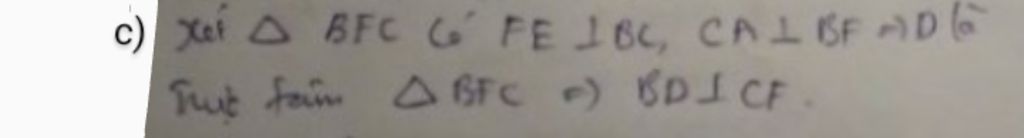 c) Xét Δ BFC có FE ⊥ BC, CA ⊥ BF => D là
trực tâm Δ BFC => BD ⊥ CF.